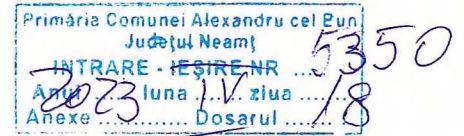 Primăria Comunei Alexandru cel Bun
Judeţul Neamţ
INTRARE - IEŞIRE NR ... 5350
Anul 2023 luna IV ziua 18
Anexe ............ Dosarul ........